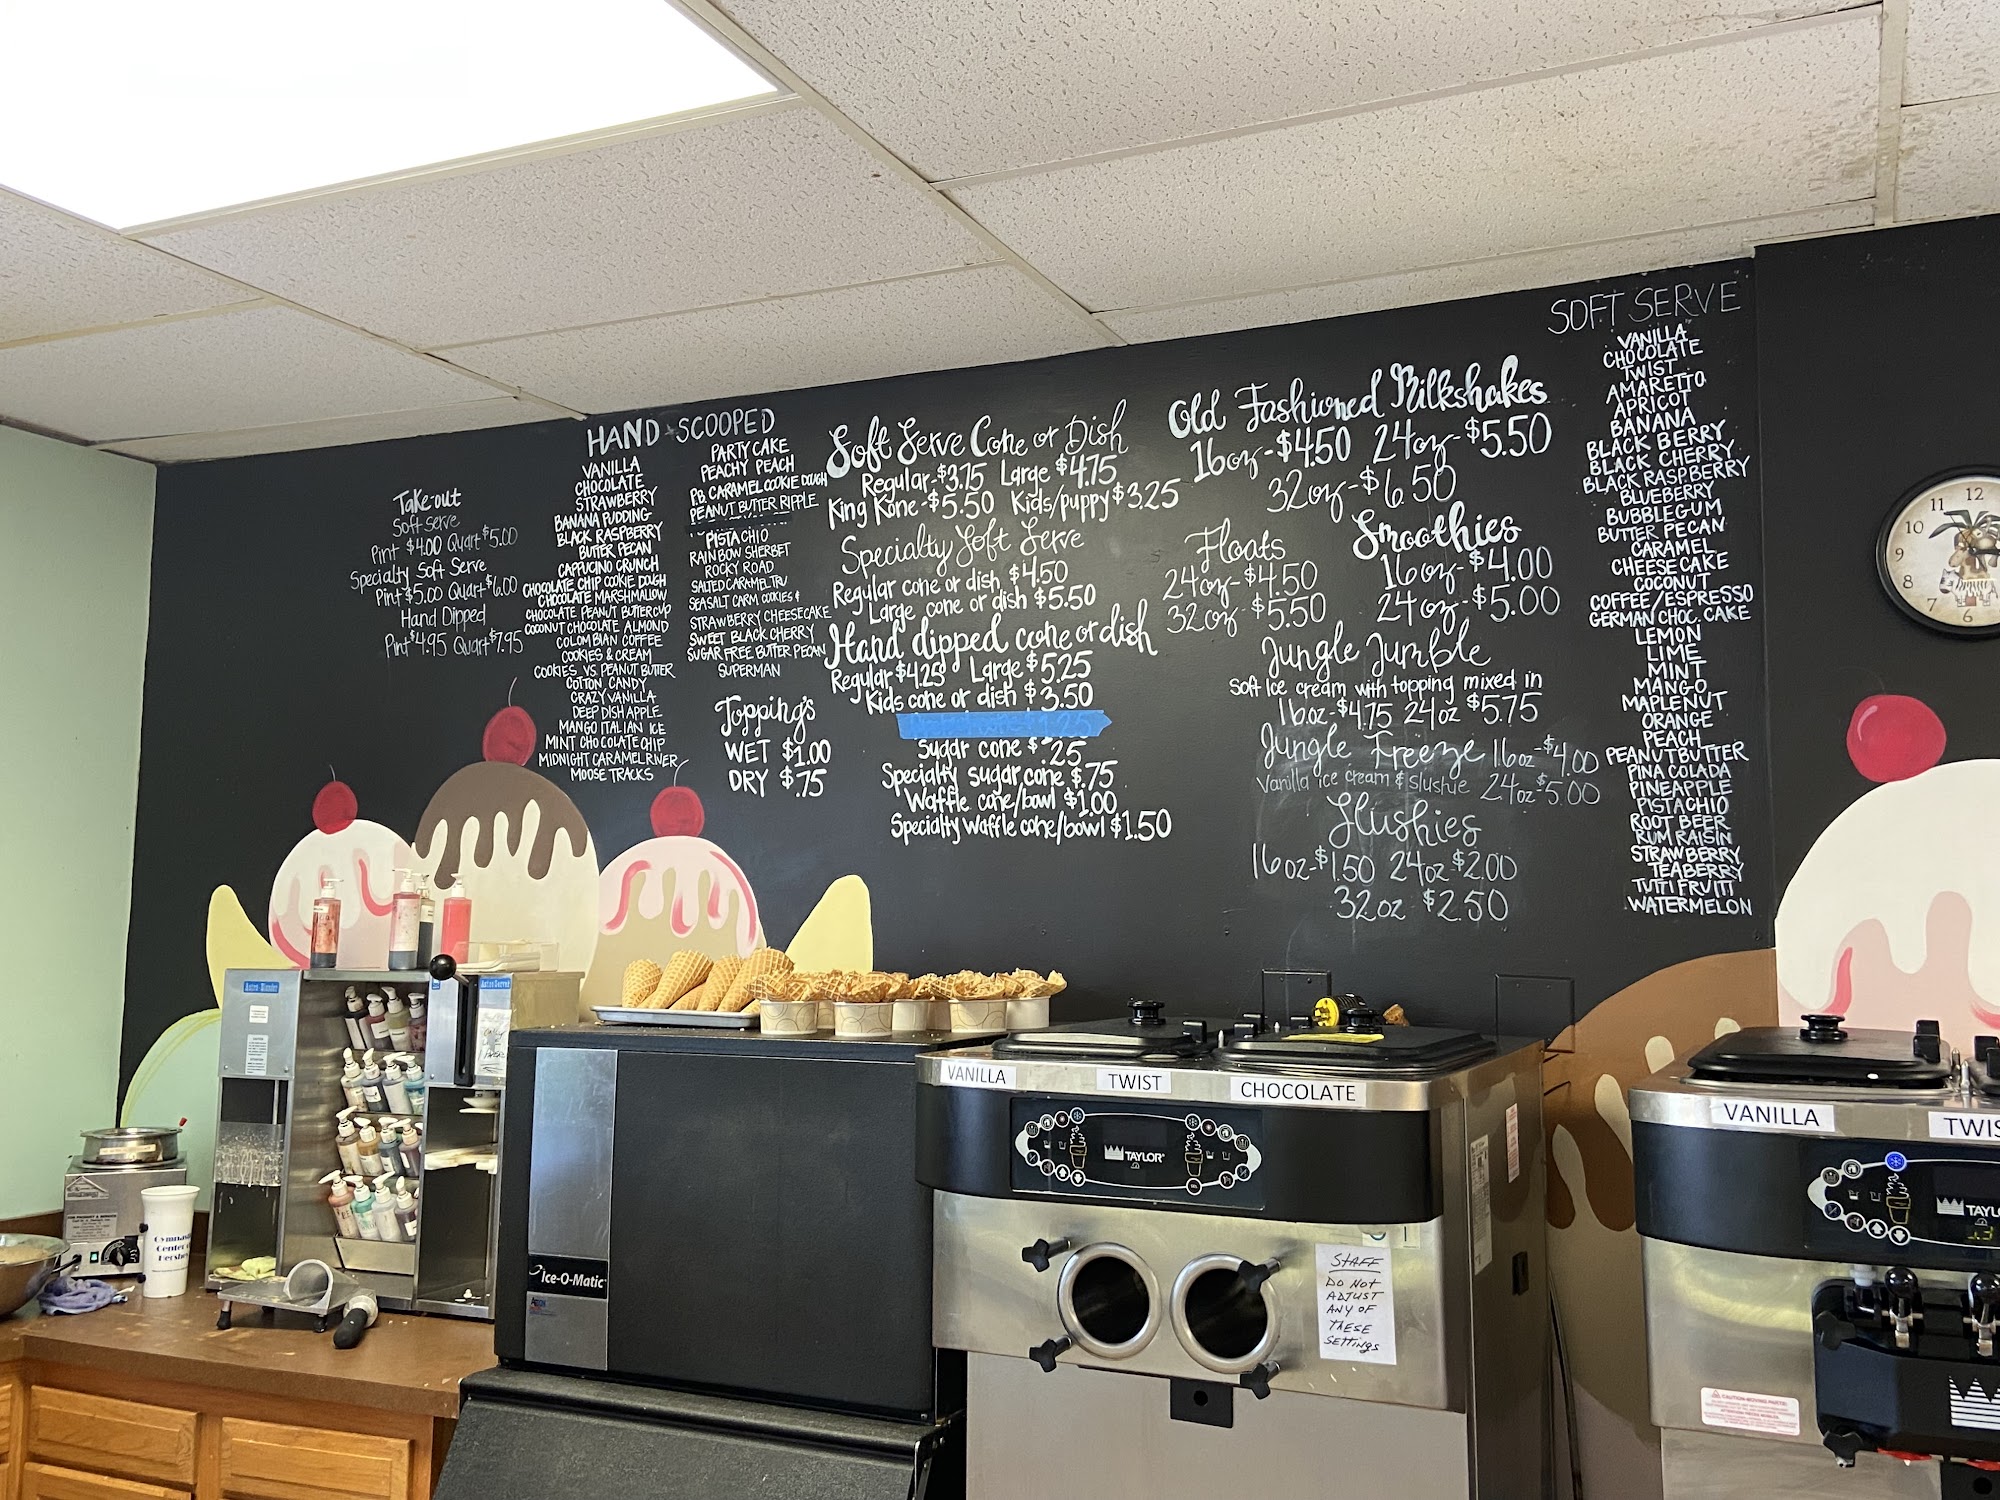 Take-out
Soft serve
Pint $4.00 Quart $5.00
Specialty Soft Serve
Pint $5.00 Quart $6.00
Hand Dipped
Pint $4.95 Quart $7.95
HAND SCOOPED
VANILLA
CHOCOLATE
STRAWBERRY
BANANA PUDDING
BLACK RASPBERRY
BUTTER PECAN
CAPPUCINO CRUNCH
CHOCOLATE CHIP COOKIE DOUGH
CHOCOLATE MARSHMALLOW
CHOCOLATE PEANUT BUTTERCUP
COCONUT CHOCOLATE ALMOND
COLOMBIAN COFFEE
COOKIES & CREAM
COOKIES VS. PEANUT BUTTER
COTTON CANDY
CRAZY VANILLA
DEEP DISH APPLE
MANGO ITALIAN ICE
MINT CHOCOLATE CHIP
MIDNIGHT CARAMEL RIVER
MOOSE TRACKS
PARTY CAKE
PEACHY PEACH
P.B. CARAMEL COOKIE DOUGH
PEANUT BUTTER RIPPLE
PISTACHIO
RAINBOW SHERBET
ROCKY ROAD
SALTED CARAMEL TRU
SEASALT CARM COOKIES &
STRAWBERRY CHEESECAKE
SWEET BLACK CHERRY
SUGAR FREE BUTTER PECAN
SUPERMAN
Topping's
WET $1.00
DRY $.75
Soft Serve Cone or Dish
Regular-$3.75 Large $4.75
King Kone-$5.50 Kids/puppy $3.25
Specialty Soft Serve
Regular cone or dish $4.50
Large cone or dish $5.50
Hand dipped cone or dish
Regular $4.25 Large $5.25
Kids cone or dish $3.50
Sugar cone $.25
Specialty sugar cone $.75
Waffle cone/bowl $1.00
Specialty waffle cone/bowl $1.50
Old Fashioned Milkshakes
16oz-$4.50 24oz-$5.50
32oz-$6.50
Floats
24oz-$4.50
32oz-$5.50
Smoothies
16oz-$4.00
24oz-$5.00
Jungle Jumble
Soft Ice cream with topping mixed in
16oz-$4.75 24oz $5.75
Jungle Freeze 16oz-$4.00
Vanilla ice cream & slushie 24oz $5.00
Slushies
16oz-$1.50 24oz-$2.00
32oz $2.50
SOFT SERVE
VANILLA
CHOCOLATE
TWIST
AMARETTO
APRICOT
BANANA
BLACK BERRY
BLACK CHERRY
BLACK RASPBERRY
BLUEBERRY
BUBBLEGUM
BUTTER PECAN
CARAMEL
CHEESECAKE
COCONUT
COFFEE/ESPRESSO
GERMAN CHOC. CAKE
LEMON
LIME
MINT
MANGO
MAPLENUT
ORANGE
PEACH
PEANUTBUTTER
PINA COLADA
PINEAPPLE
PISTACHIO
ROOT BEER
RUM RAISIN
STRAWBERRY
TEABERRY
TUTTI FRUITI
WATERMELON
11 12
10
9
8
7 6
Astro Blender
Gymnast
Center
Hershe
Ice-O-Matic
VANILLA
TWIST
CHOCOLATE
TAYLOR
STAFF
DO NOT
ADJUST
ANY OF
THESE
SETTINGS
VANILLA
TWIS
TAYLO